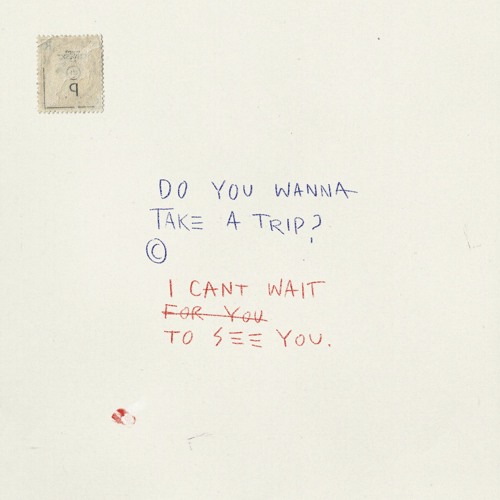 DO YOU WANNA
TAKE A TRIP?
©
I CANT WAIT
FOR YOU
TO SEE YOU.